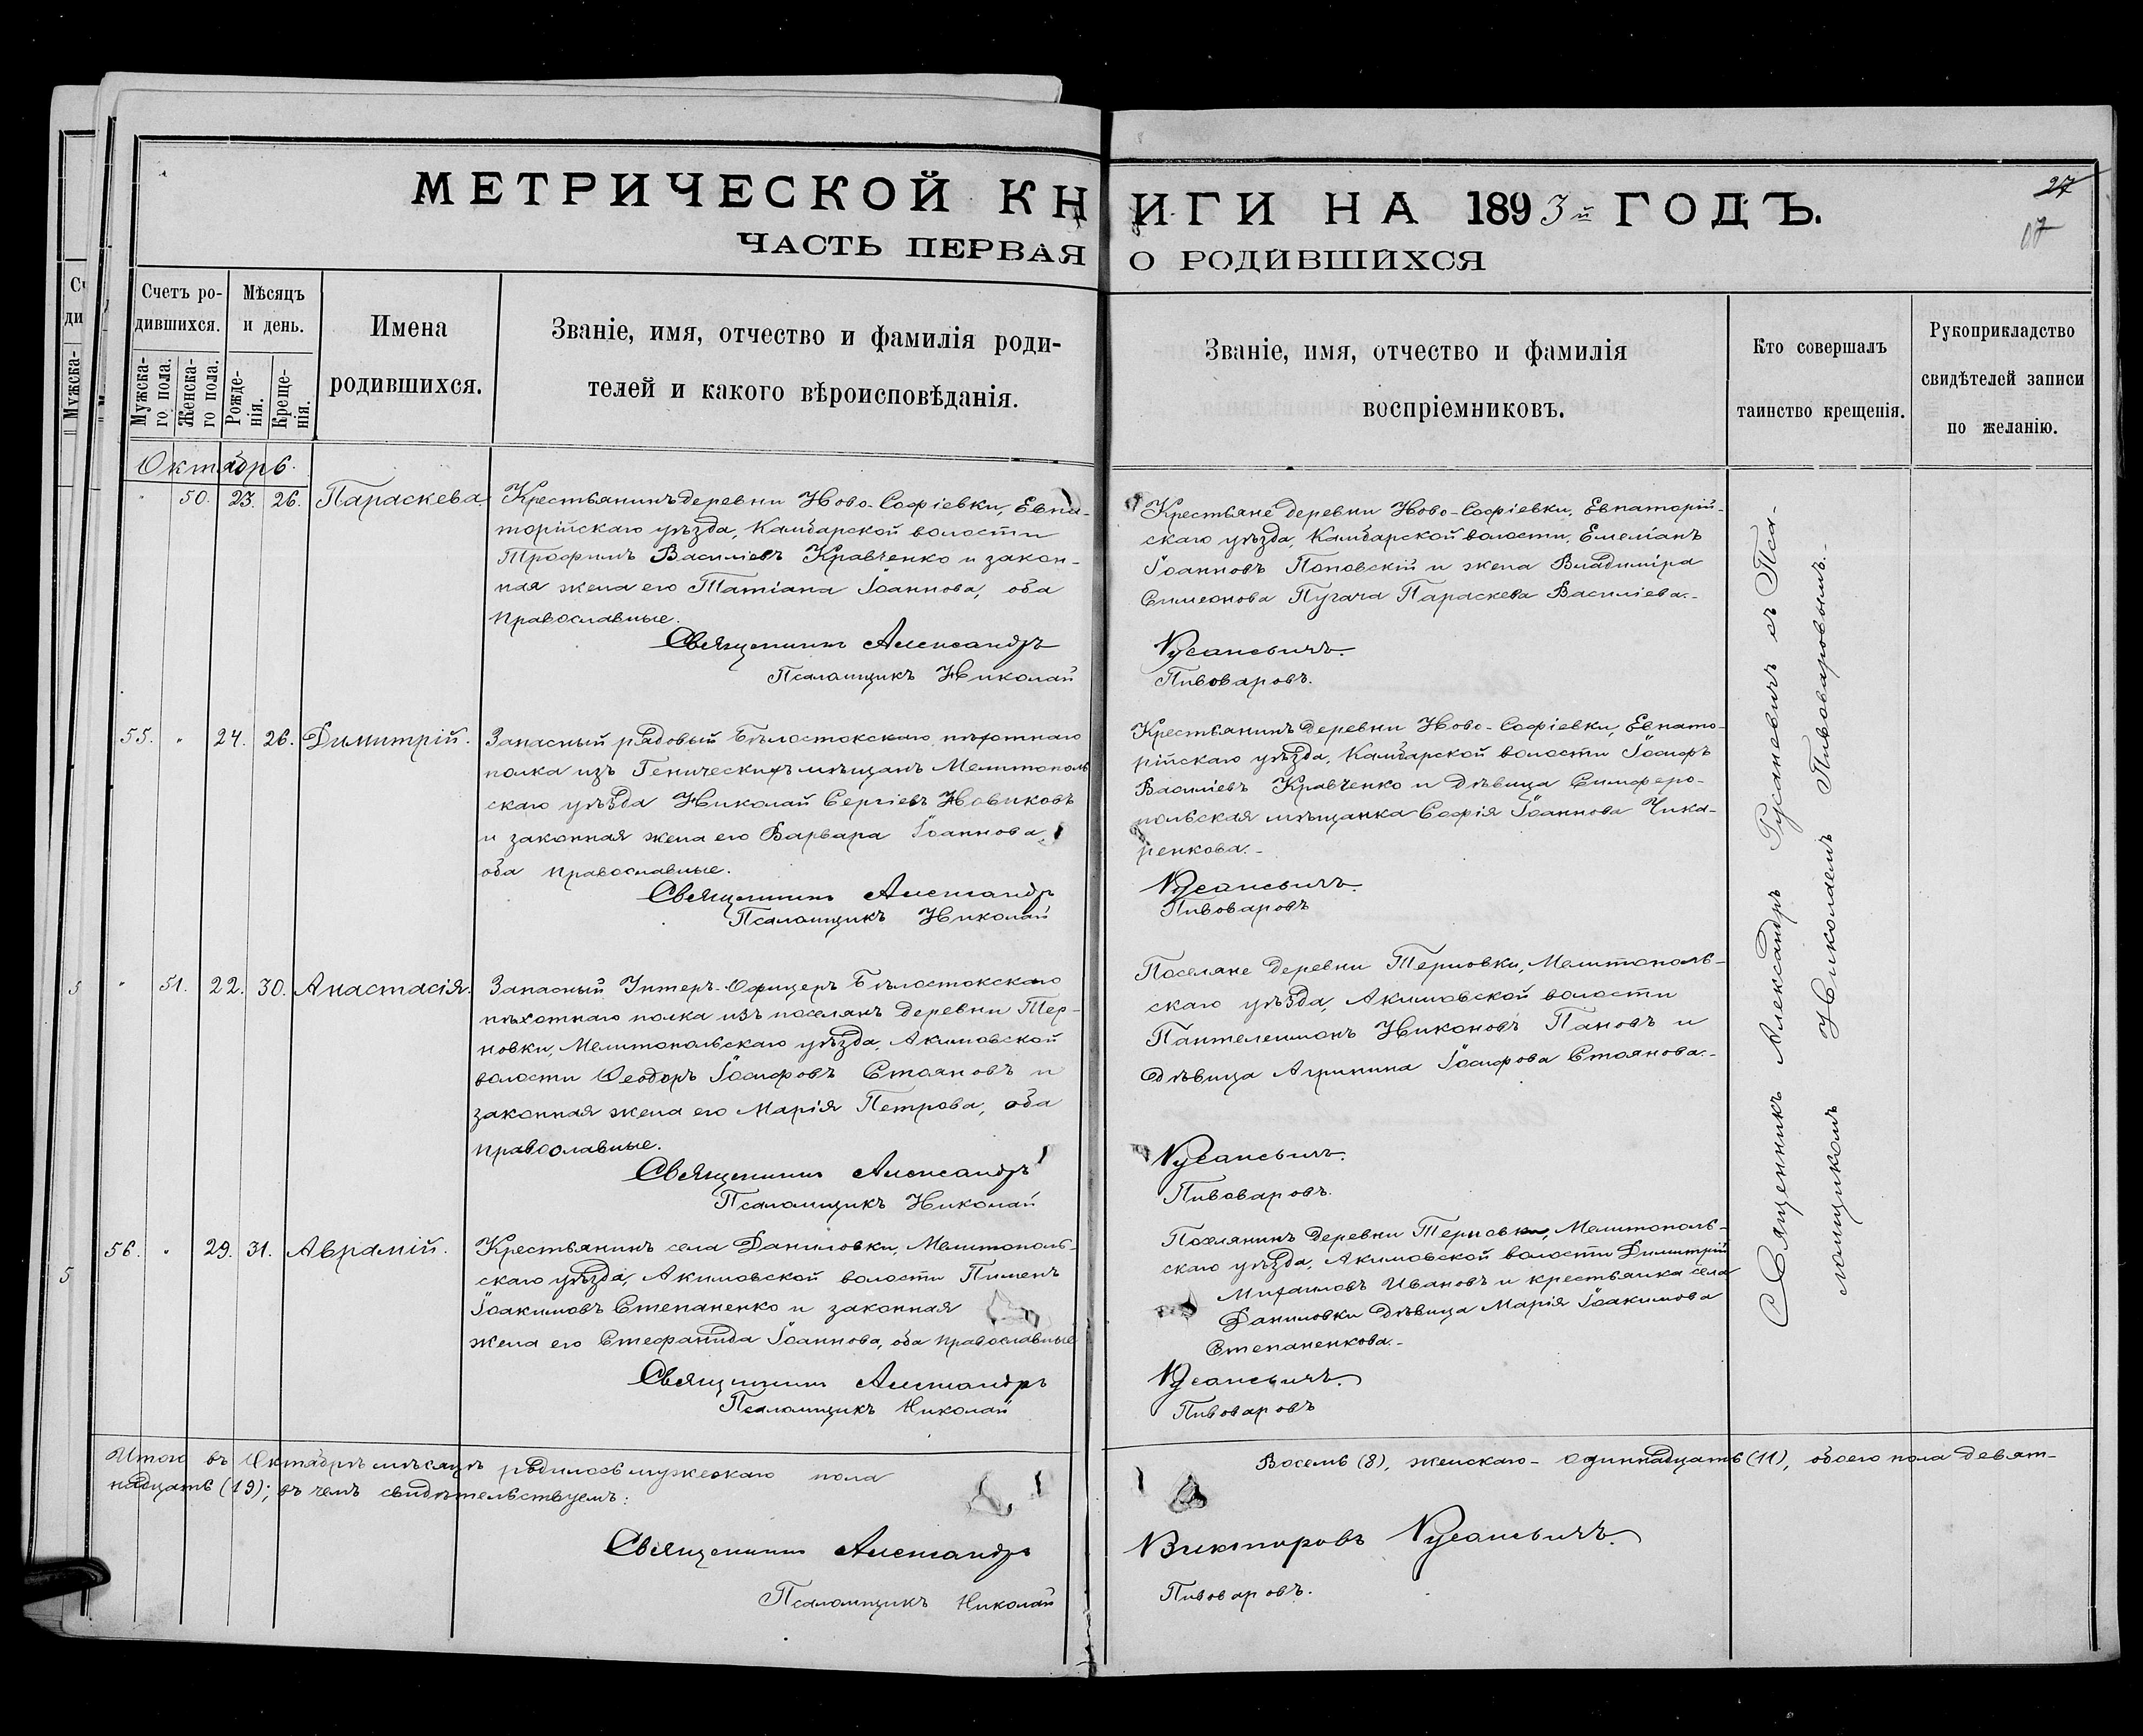 МЕТРИЧЕСКОЙ КНИГИ НА 1893й ГОДЪ.
27
ЧАСТЬ ПЕРВАЯ О РОДИВШИХСЯ
Счетъ ро-
дившихся.
Мужска-
го пола.
Женска-
го пола.
Мѣсяцъ
и день.
Рожде-
нія.
Креще-
нія.
Имена
родившихся.
Званіе, имя, отчество и фамилія роди-
телей и какого вѣроисповѣданія.
Званіе, имя, отчество и фамилія
воспріемниковъ.
Кто совершалъ
таинство крещенія.
Рукоприкладство
свидѣтелей записи
по желанію.
Октябрь.
" 50. 23. 26. Параскева.
Крестьянинъ деревни Ново-Софіевки, Евпа-
торійскаго уѣзда, Камбарской волости
Трофимъ Василіевъ Кравченко и закон-
ная жена его Татіана Іоаннова, оба
православные.
Священникъ Александръ
Псаломщикъ Николай
Крестьяне деревни Ново-Софіевки, Евпаторій-
скаго уѣзда, Камбарской волости, Емеліанъ
Іоанновъ Поповскій и жена Владиміра
Симеонова Пугача Параскева Василіева.-
Русаневичъ.
Пивоваровъ.
55. " 24. 26. Димитрій.
Запасный рядовый Бѣлостокскаго пѣхотнаго
полка изъ Геническихъ мѣщанъ Мелитополь
скаго уѣзда Николай Сергіевъ Новиковъ
и законная жена его Варвара Іоаннова,
оба православные.
Священникъ Александръ
Псаломщикъ Николай
Крестьянинъ деревни Ново-Софіевки, Евпато-
рійскаго уѣзда, Камбарской волости Іосифъ
Василіевъ Кравченко и дѣвица Симферо-
польская мѣщанка Софія Іоаннова Чика-
ренкова.-
Русаневичъ.
Пивоваровъ
" 51. 22. 30. Анастасія.
Запасный Унтеръ-Офицеръ Бѣлостокскаго
пѣхотнаго полка изъ поселянъ деревни Тер-
новки, Мелитопольскаго уѣзда, Акимовской
волости Ѳеодоръ Іосифовъ Стояновъ и
законная жена его Марія Петрова, оба
православные.
Священникъ Александръ
Псаломщикъ Николай
Поселяне деревни Терновки, Мелитополь-
скаго уѣзда, Акимовской волости
Пантелеимонъ Никоновъ Пановъ и
дѣвица Агрипина Іосифова Стоянова.-
Русаневичъ.
Пивоваровъ.
56. " 29. 31. Аврамій.
Крестьянинъ села Даниловки, Мелитополь-
скаго уѣзда, Акимовской волости Пименъ
Іоакимовъ Степаненко и законная
жена его Стефанида Іоаннова, оба православные
Священникъ Александръ
Псаломщикъ Николай
Поселянинъ деревни Терновки, Мелитополь-
скаго уѣзда, Акимовской волости Димитрій
Михаиловъ Ивановъ и крестьянка села
Даниловки дѣвица Марія Іоакимова
Степаненкова.-
Русаневичъ.
Пивоваровъ
Священникъ Александръ Русаневичъ съ Пса-
ломщикомъ Николаемъ Пивоваровымъ.-
Итого въ Октябрѣ мѣсяцѣ родилось мужескаго пола Восемь (8), женскаго- Одиннадцать (11), обоего пола девят-
надцать (19); въ чемъ свидѣтельствуемъ:
Священникъ Александръ Викторовъ Русаневичъ.
Псаломщикъ Николай Пивоваровъ.